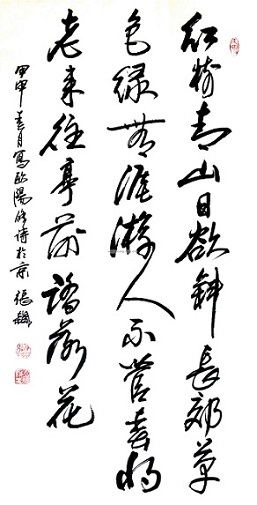 红树青山日欲斜长郊草
色绿无涯游人不管春将
老来往亭前踏落花
甲申春月写欧阳修诗於京 张飙